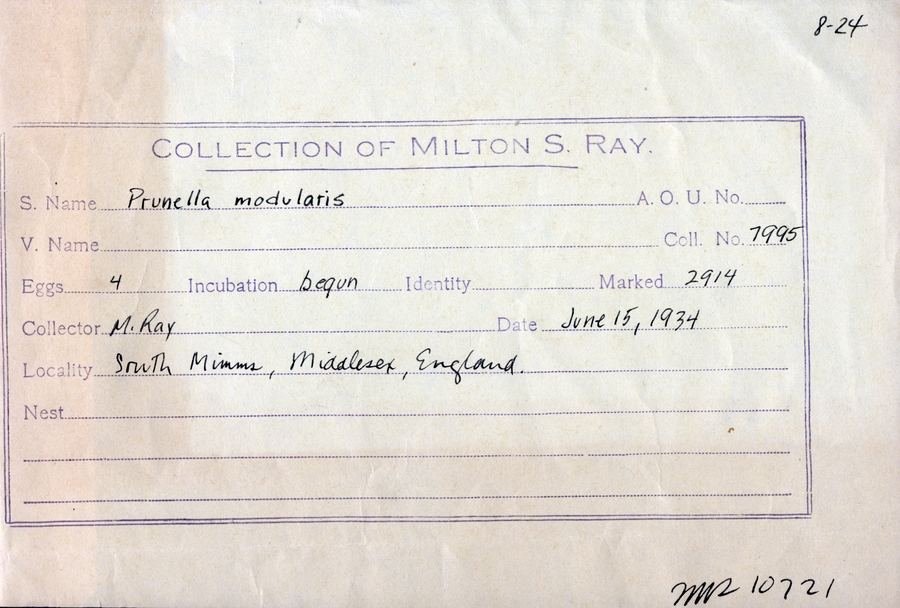 8-24
COLLECTION OF MILTON S. RAY.
S. Name Prunella modularis A. O. U. No.
V. Name Coll. No. 7995
Eggs 4 Incubation begun Identity Marked 2914
Collector M. Ray Date June 15, 1934
Locality South Mimms, Middlesex, England.
Nest
10721